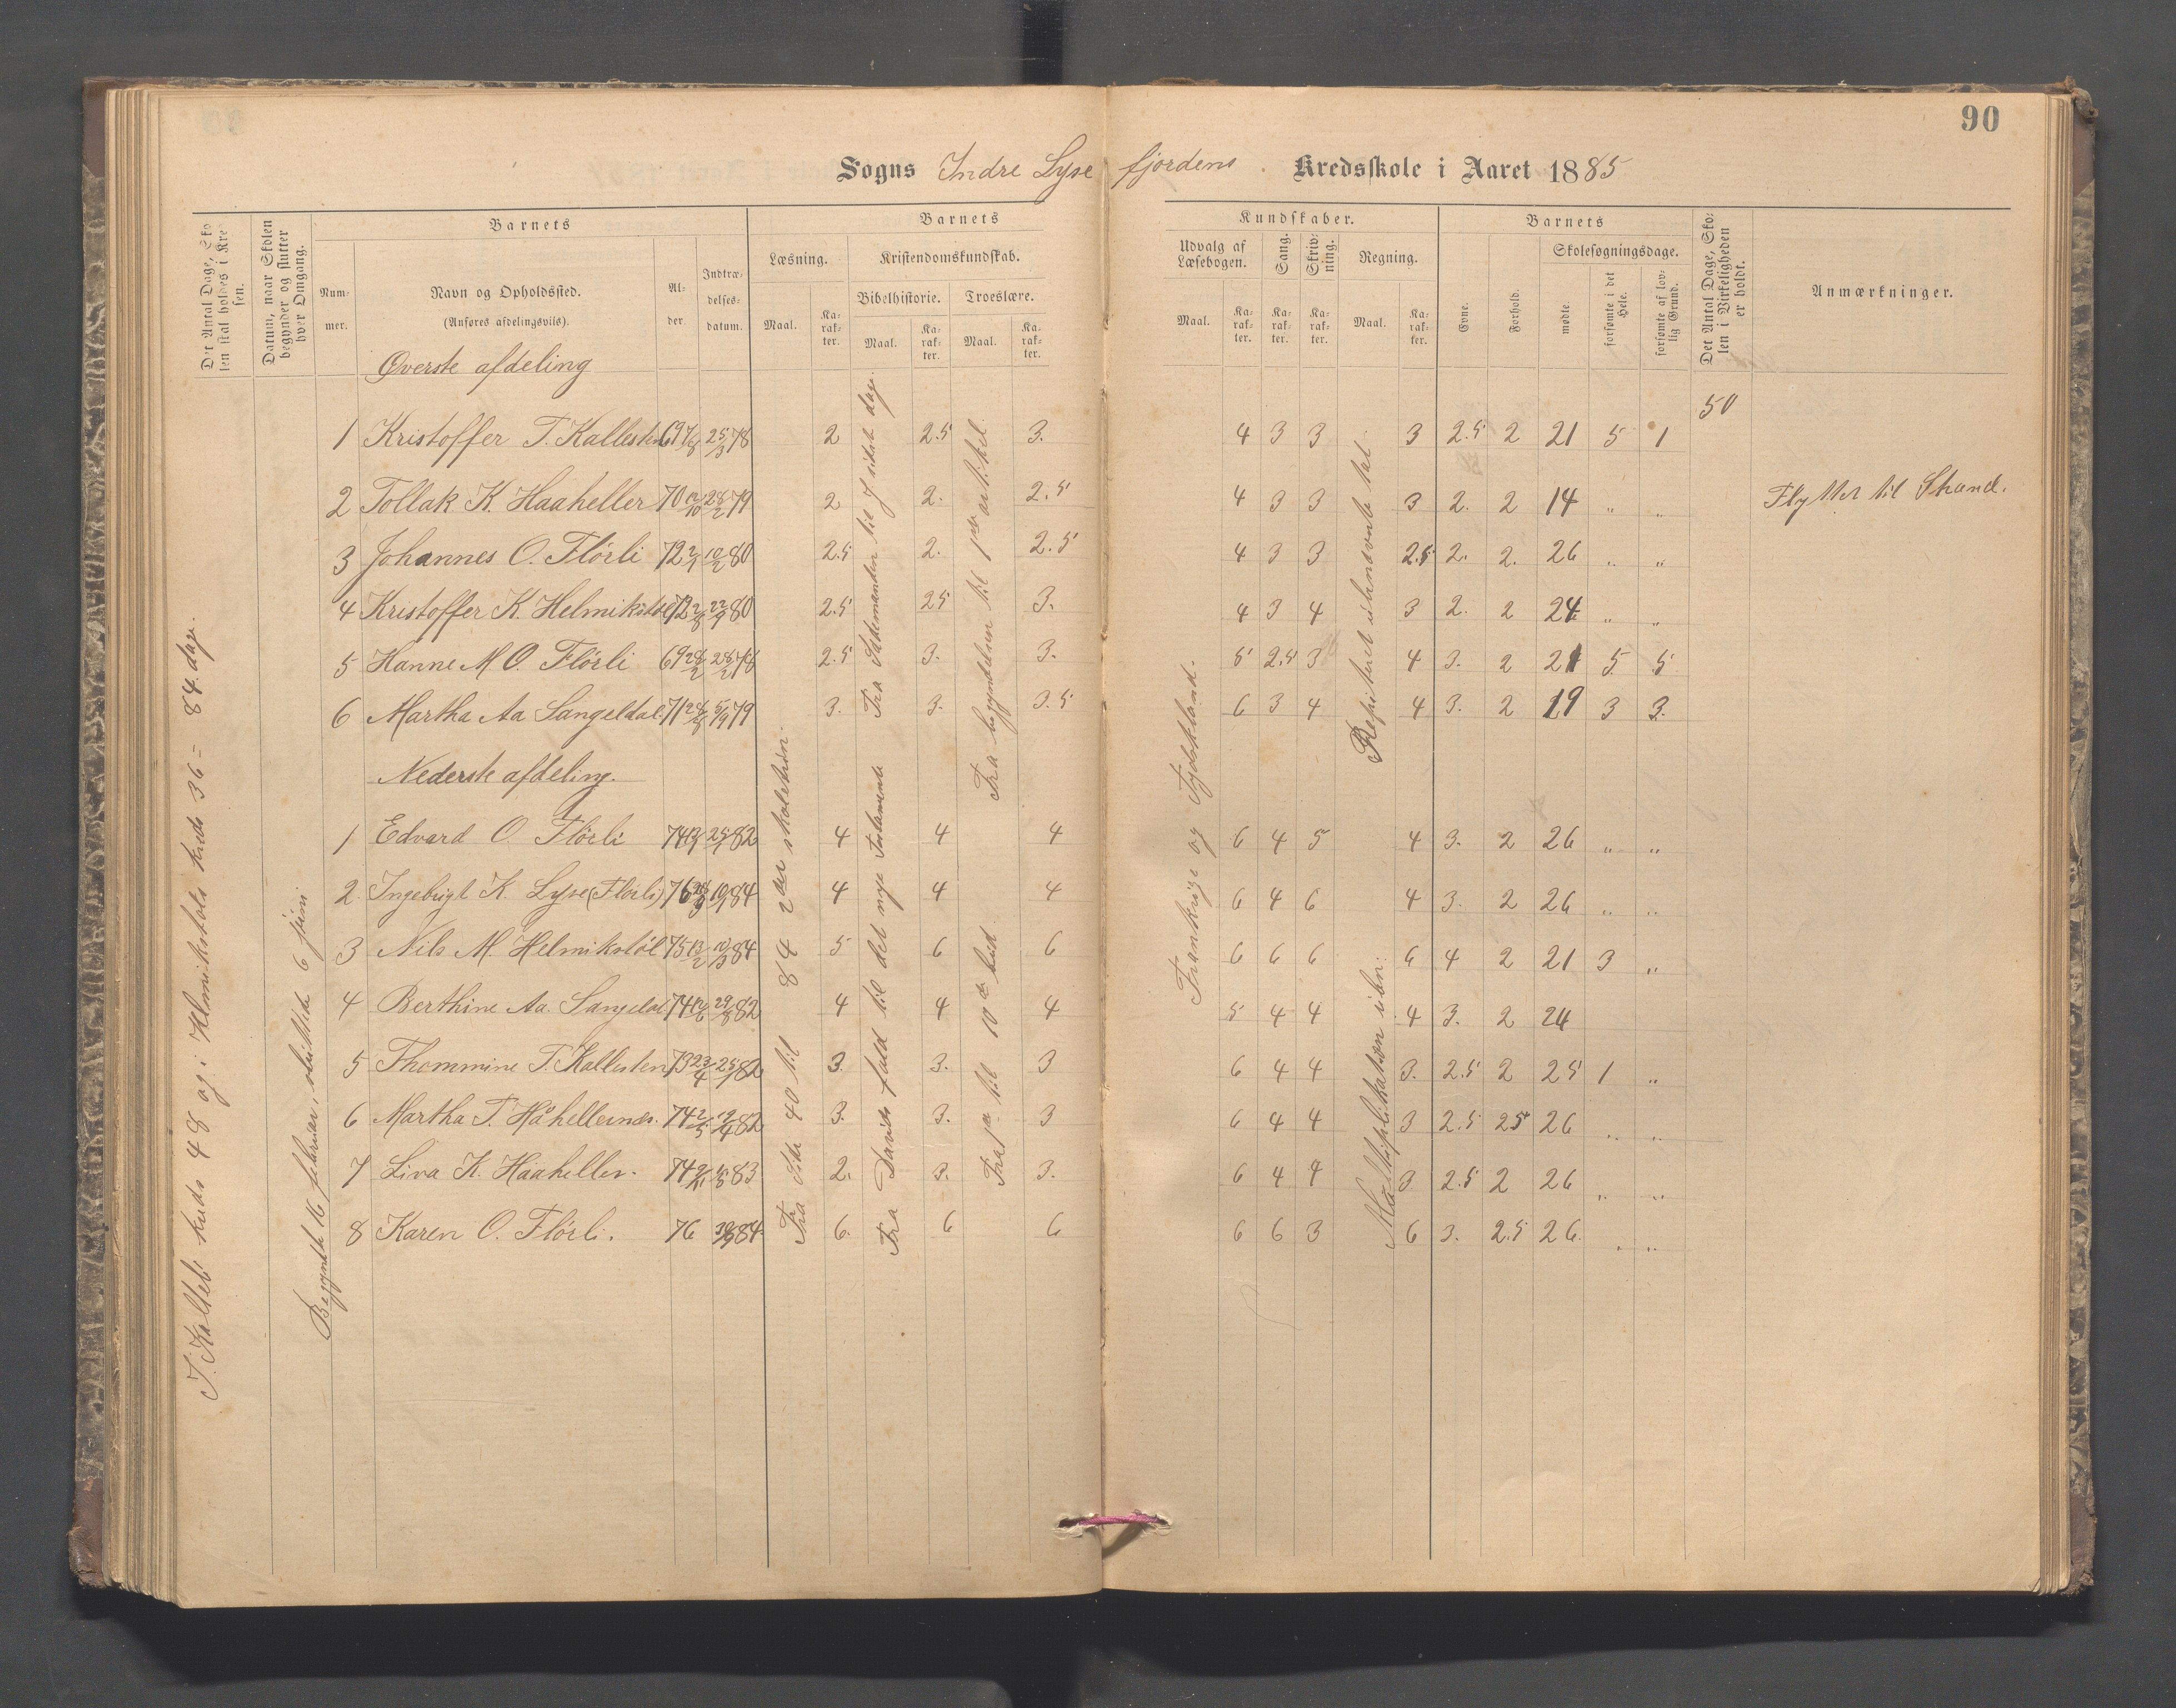 90
Sogns Indre Lysefjordens Kredsskole i Aaret 1885
Det Antal Dage, Skolen skal holdes i Kredsen.
Datum, naar Skolen begynder og slutter hver Omgang.
Barnets
Nummer.
Navn og Opholdssted.
(Anføres afdelingsvis).
Alder.
Indtrædelsesdatum.
Barnets
Læsning.
Maal.
Karakter.
Kristendomskundskab.
Bibelhistorie.
Maal.
Karakter.
Troeslære.
Maal.
Karakter.
Kundskaber.
Udvalg af Læsebogen.
Maal.
Karakter.
Sang.
Karakter.
Skrivning.
Karakter.
Regning.
Maal.
Karakter.
Barnets
Evne.
Forhold.
Skolesøgningsdage.
mødte
forsømte i det Hele.
forsømte af lovlig Grund.
Det Antal Dage, Skolen i Virkeligheden er holdt.
Anmærkninger.
Øverste afdeling
50
1 Kristoffer T. Kallesten 69 7/8 25/3 78 2 2.5 3. 4 3 3 3 2.5 2 21 5 1
2 Tollak K. Haaheller 70 28/2 79 2 2. 2.5 4 3 3 3 2. 2 14 " " Flyttet til Strand.
3 Johannes O. Flörli 72 2/1 10/2 80 2.5 2. 2.5 4 3 3 2.5 2. 2. 26 " "
4 Kristoffer K. Helmikstöl 72 22/9 80 2.5 25 3. 4 3 4 3 2. 2 24 " "
5 Hanne M O. Flörli 69 28/2 28/2 78 2.5 3. 3. 5 2.5 3 4 3. 2 21 5 5
6 Martha Aa Sangeldal 71 5/9 79 3. 3. 3.5 6 3 4 4 3. 2 19 3 3.
Nederste afdeling.
1 Edvard O. Flörli 74 82 4 4 4 6 4 5 4 3. 2 26 " "
2. Ingebrigt K. Lyse (Flörli) 76 84 4 4 4 6 4 6 4 3. 2 26 " "
3 Nils M. Helmikstöl 75 13/2 84 5 6 6 6 6 6 6 4 2 21 3 "
4 Berthine Aa. Sangeldal 74 12/6 29/8 82 4 4 4 5 4 4 4 3. 2 24
5 Thommine T. Kallesten 73 23/4 82 3. 3. 3 6 4 4 3. 2.5 2 25 1 "
6 Martha T. Håhellernes. 74 2/5 82 3. 3. 3 6 4 4 3 2.5 25 26 " "
7 Liva K. Haaheller. 74 83 2. 3. 3. 6 4 4 3 2.5 2 26 " "
8 Karen O. Flörli. 76 84 6. 6 6 6 6 3 6 3. 2.5 26. " "
I Kalleli kreds 48 og i Helmikstöls kreds 36 = 84 dage.
Begyndt 16 februar, sluttede 6 juni
Fra Side 40 til 84 2det skoletrin.
Fra Davids fald til det nye Testamente
Fra Sædemanden til J sidste dage.
Fra 1ste til 10de bud
Fra begyndelsen til 1ste artikel.
Frankrige og Tydskland.
Multiplikation ubn:
Repiteret ubenævnte tal.